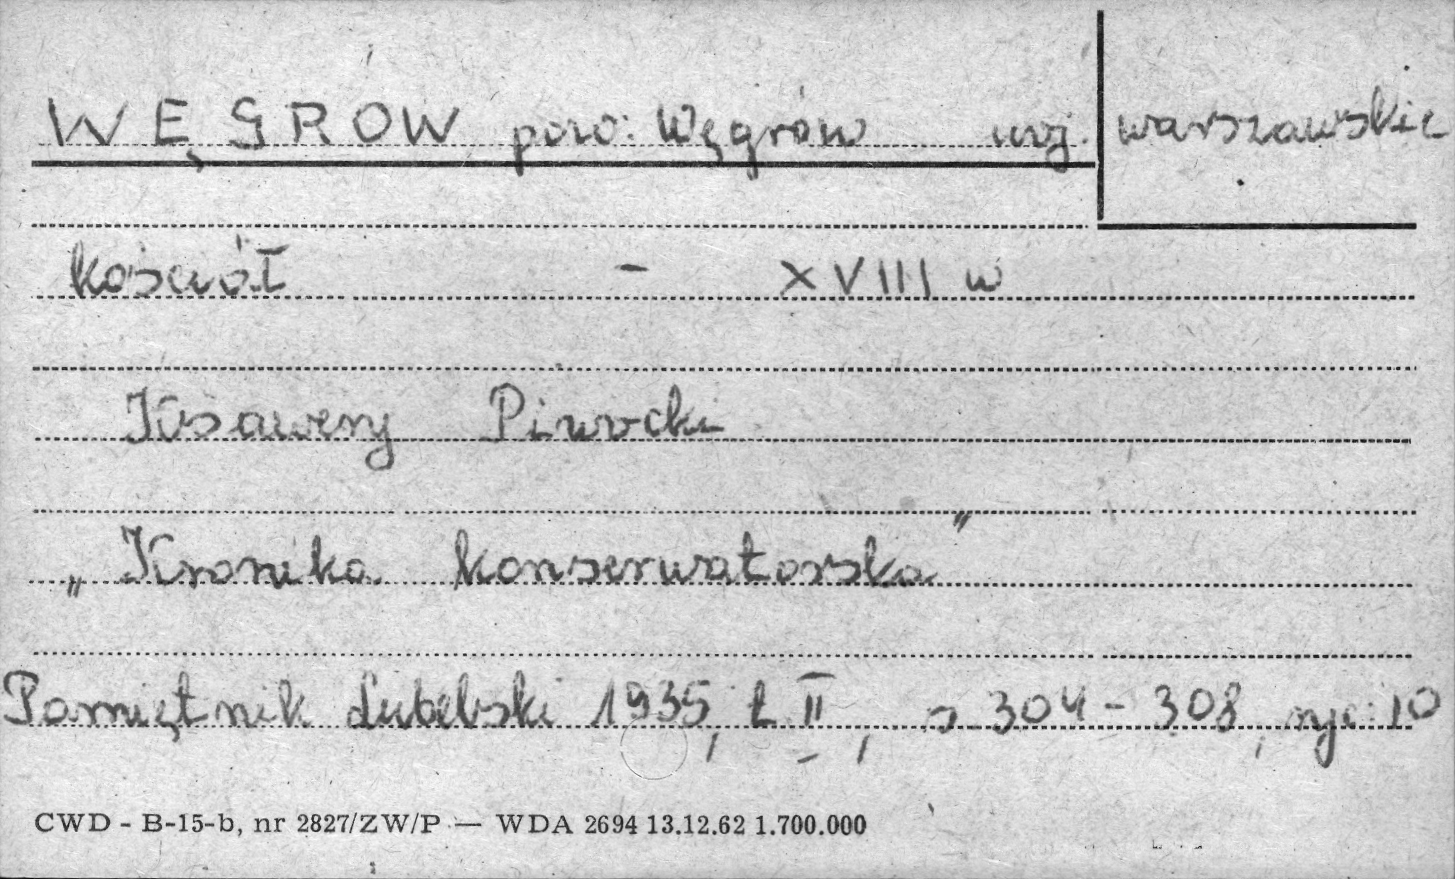 WĘGRÓW pow: Węgrów woj. warszawskie
kościół - XVIII w
Ksawery Piwocki
„Kronika konserwatorska"
Pamiętnik Lubelski 1935, t II, s 304-308, ryc 10
CWD - B-15-b, nr 2827/ZW/P — WDA 2694 13.12.62 1.700.000